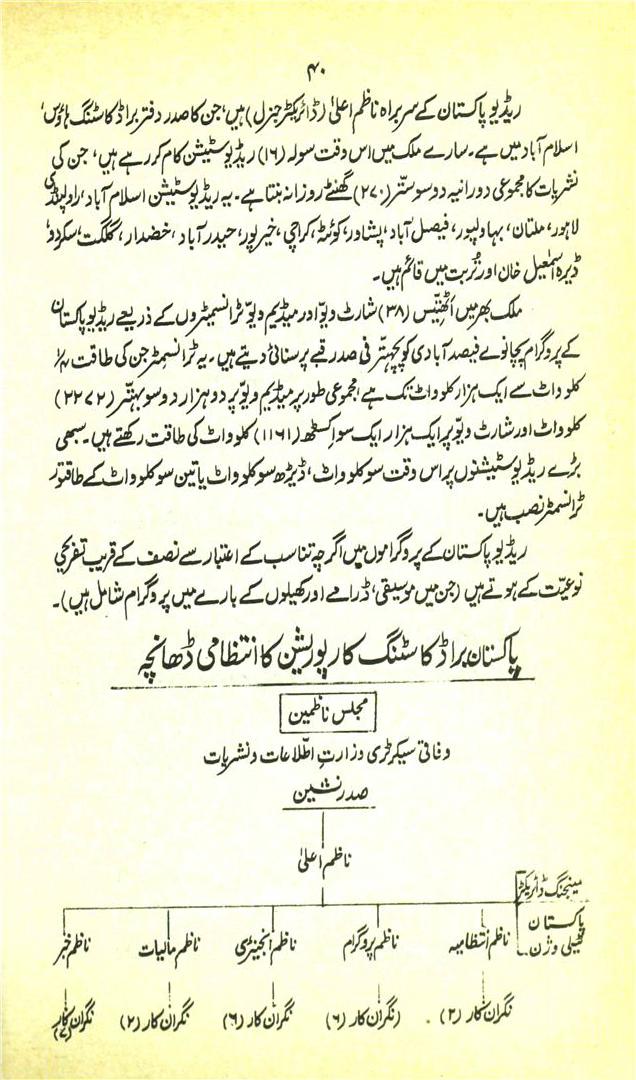 ۴۰
ریڈیو پاکستان کے سربراہ ناظم اعلیٰ (ڈائریکٹر جنرل) ہیں، جن کا صدر دفتر براڈ کاسٹنگ ہاؤس،
اسلام آباد میں ہے۔ سارے ملک میں اس وقت سولہ (۱۶) ریڈیو سٹیشن کام کر رہے ہیں، جن کی
نشریات کا مجموعی دورانیہ دو سو ستّر (۲۷۰) گھنٹے روزانہ بنتا ہے۔ یہ ریڈیو سٹیشن اسلام آباد، راولپنڈی
لاہور، ملتان، بہاولپور، فیصل آباد، پشاور، کوئٹہ، کراچی، خیرپور، حیدر آباد، خضدار، گلگت، سکردو،
ڈیرہ اسمٰعیل خان اور تُربت میں قائم ہیں۔
ملک بھر میں اڑتیس (۳۸) شارٹ ویو اور میڈیم ویو ٹرانسمٹروں کے ذریعے ریڈیو پاکستان
کے پروگرام پچانوے فیصد آبادی کو پچہتّر فی صد رقبے پر سنائی دیتے ہیں۔ یہ ٹرانسمٹر جن کی طاقت
کلو واٹ سے ایک ہزار کلو واٹ تک ہے مجموعی طور پر میڈیم ویو پر دو ہزار دو سو بہتّر (۲۲۷۲)
کلو واٹ اور شارٹ ویو پر ایک ہزار ایک سو اکسٹھ (۱۱۶۱) کلو واٹ کی طاقت رکھتے ہیں۔ سبھی
بڑے ریڈیو سٹیشنوں پر اس وقت سو کلو واٹ، ڈیڑھ سو کلو واٹ یا تین سو کلو واٹ کے طاقتور
ٹرانسمٹر نصب ہیں۔
ریڈیو پاکستان کے پروگراموں میں اگرچہ تناسب کے اعتبار سے نصف کے قریب تفریحی
نوعیّت کے ہوتے ہیں (جن میں موسیقی، ڈرامے اور کھیلوں کے بارے میں پروگرام شامل ہیں)۔
پاکستان براڈ کاسٹنگ کارپوریشن کا انتظامی ڈھانچہ
مجلس ناظمین
وفاقی سیکرٹری وزارتِ اطّلاعات و نشریات
صدر نشین
ناظم اعلیٰ
مینجنگ ڈائریکٹر
پاکستان
ٹیلی وژن
ناظم انتظامیہ ناظم پروگرام ناظم انجینئری ناظم مالیات ناظم خبر
نگران کار (۲) (نگران کار (۶) نگران کار (۶) نگران کار (۲) نگران کار (۷)